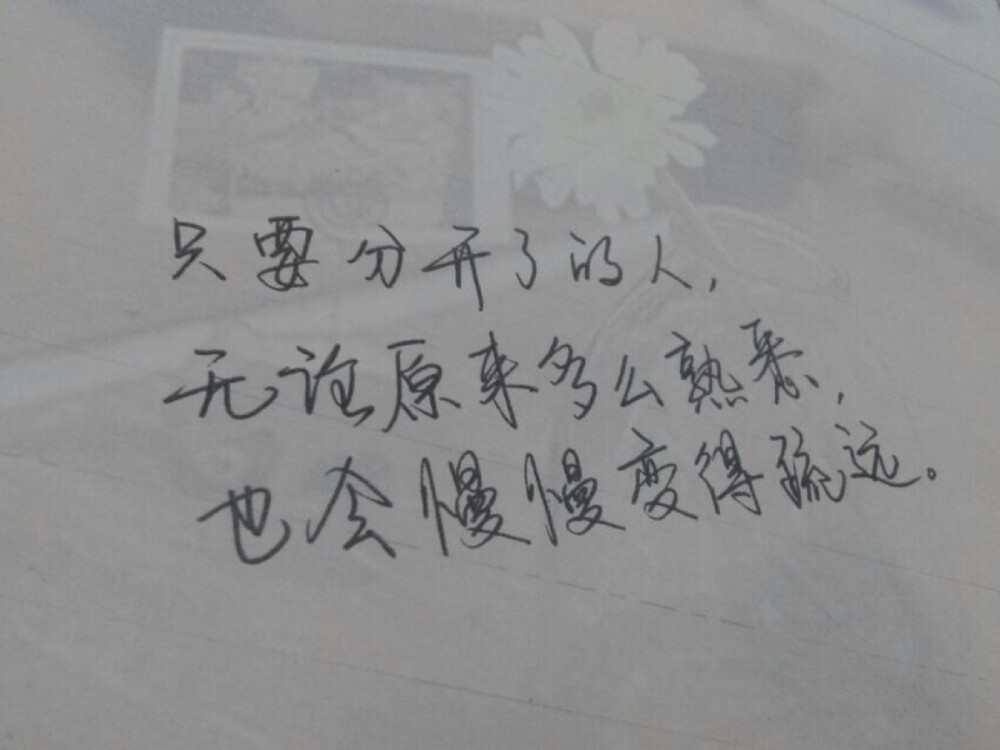 只要分开了的人,
无论原来多么熟悉,
也会慢慢变得疏远。